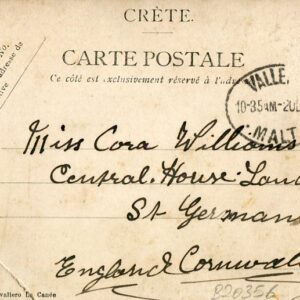 CRÈTE.
No.
adresse de
CARTE POSTALE
Ce côté est exclusivement réservé à l'adres
VALLE
10-35AM-2
MALT
Miss Cora Williams
Central House Land
St German
England Cornwall
valiero La Canée
220356